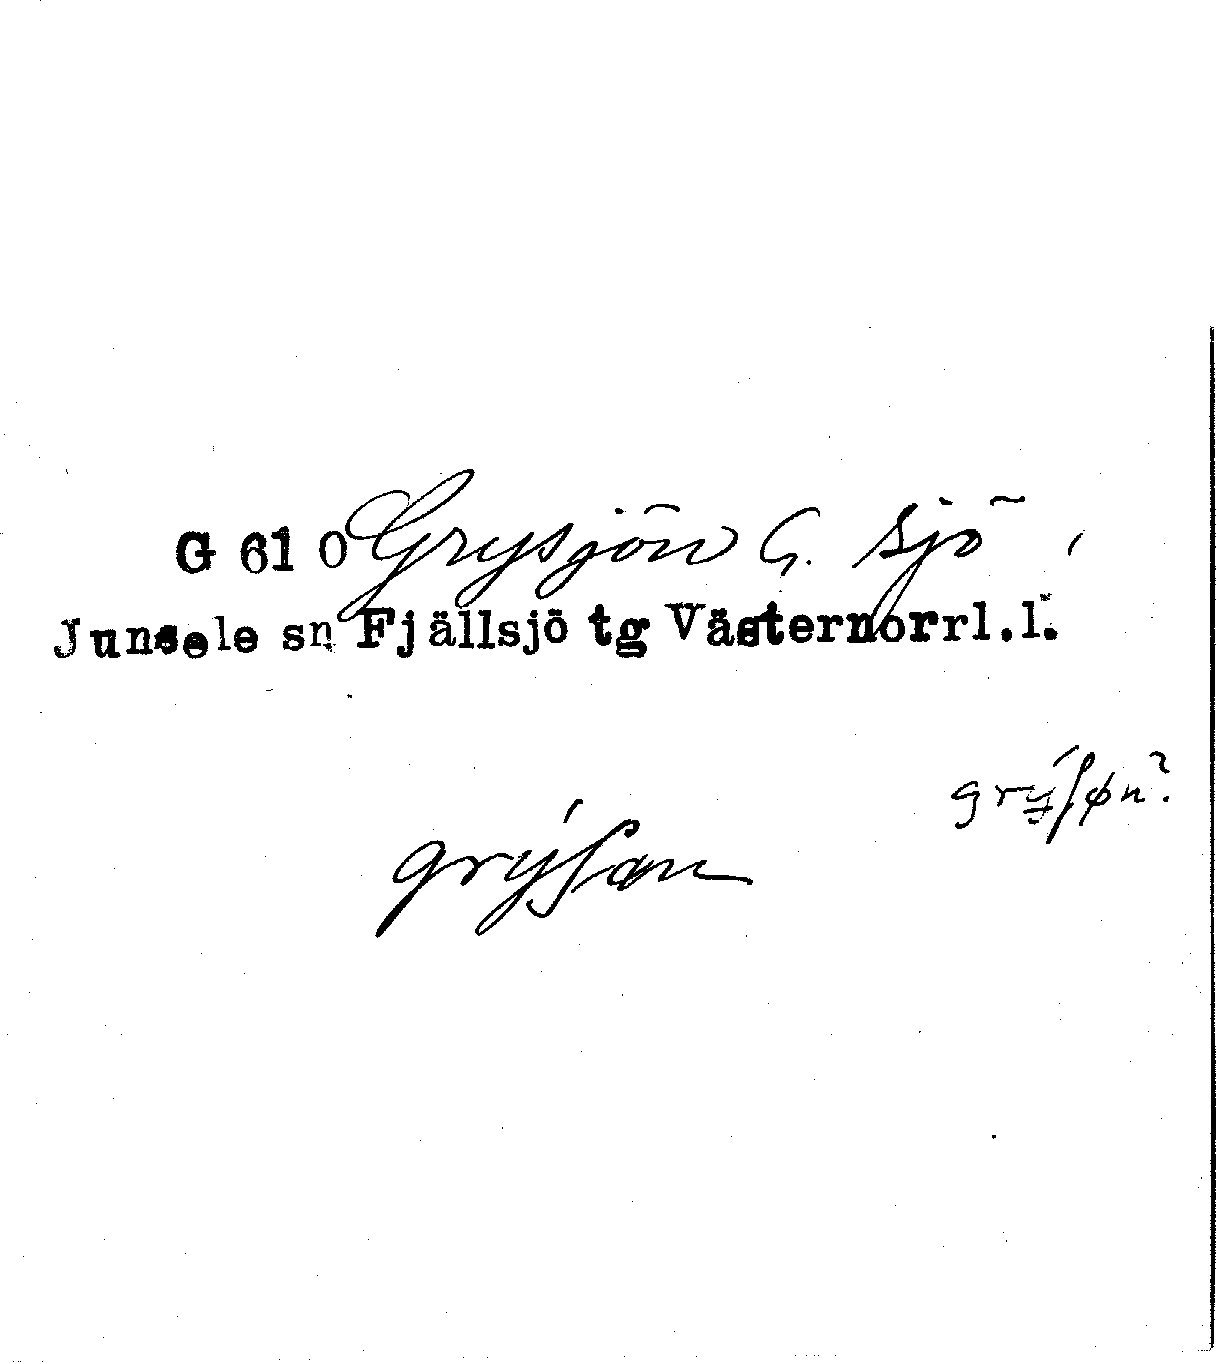 G 61 O Grysjön G. sjö,
Junsele sn Fjällsjö tg Västernorrl.l.
grýʃøn?
grýʃøn